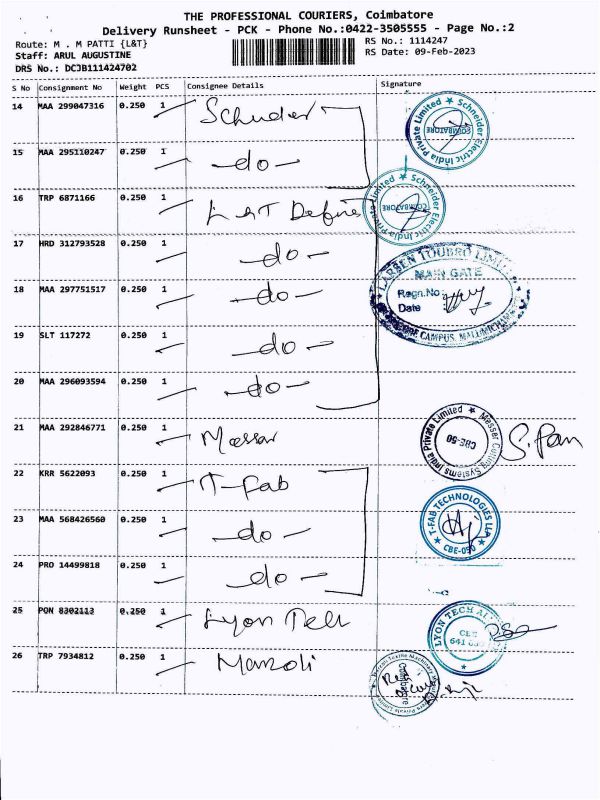 THE PROFESSIONAL COURIERS, Coimbatore
Delivery Runsheet - PCK - Phone No.:0422-3505555 - Page No.:2
Route: M . M PATTI {L&T}
RS No.: 1114247
Staff: ARUL AUGUSTINE
RS Date: 09-Feb-2023
DRS No.: DCJB111424702
S No Consignment No Weight PCS Consignee Details Signature
14 MAA 299047316 0.250 1
COIMBATORE
Schneider Electric India Private Limited
15 MAA 295110247 0.250 1 -do-
16 TRP 6871166 0.250 1 L&T Define
COIMBATORE
Schneider Electric India Private Limited
17 HRD 312793528 0.250 1 -do-
LARSEN TOUBRO LIMITED
MAIN GATE
Regn.No
Date
CAMPUS,
18 MAA 297751517 0.250 1 -do-
19 SLT 117272 0.250 1 -do-
20 MAA 296093594 0.250 1 -do-
21 MAA 292846771 0.250 1 Messar
Messer Cutting Systems India Private Limited
CBE-50
22 KRR 5622093 0.250 1 T-Fab
T-FAB TECHNOLOGIES LLP
CBE-050
23 MAA 568426560 0.250 1 -do-
24 PRO 14499818 0.250 1 -do-
25 PON 8302113 0.250 1 Lyon Tech
LYON TECH
26 TRP 7934812 0.250 1 Marzoli
Coimbatore